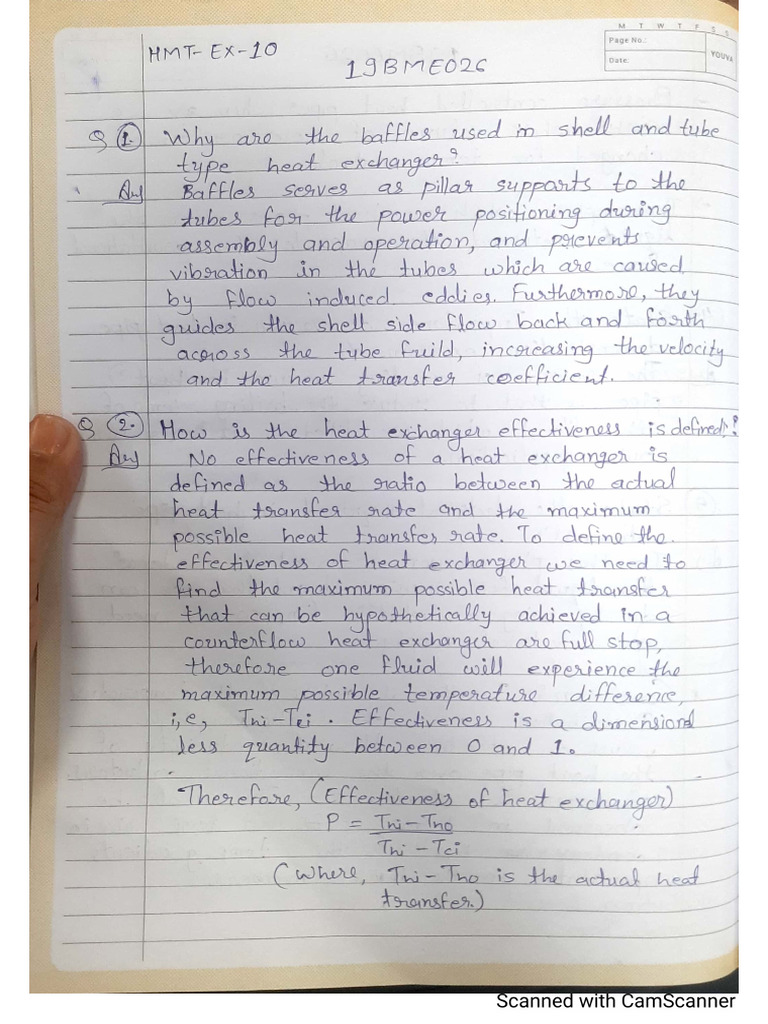 M T W T F S S
Page No.:
Date:
YOUVA
HMT-EX-10
19BME026
Q 1. Why are the baffles used in shell and tube
type heat exchanger?
Ans Baffles serves as pillar supports to the
tubes for the power positioning during
assembly and operation, and prevents
vibration in the tubes which are caused
by flow induced eddies. Furthermore, they
guides the shell side flow back and forth
across the tube fuild, increasing the velocity
and the heat transfer coefficient.
Q 2. How is the heat exchanger effectiveness is defined?
Ans No effectiveness of a heat exchanger is
defined as the ratio between the actual
heat transfer rate and the maximum
possible heat transfer rate. To define the
effectiveness of heat exchanger we need to
find the maximum possible heat transfer
that can be hypothetically achieved in a
counterflow heat exchanger are full stop,
therefore one fluid will experience the
maximum possible temperature difference,
i,e, Thi-Tci. Effectiveness is a dimension
less quantity between 0 and 1.
Therefore, (Effectiveness of heat exchanger)
P = Thi-Tho
Thi-Tci
(where, Thi-Tho is the actual heat
transfer.)
Scanned with CamScanner